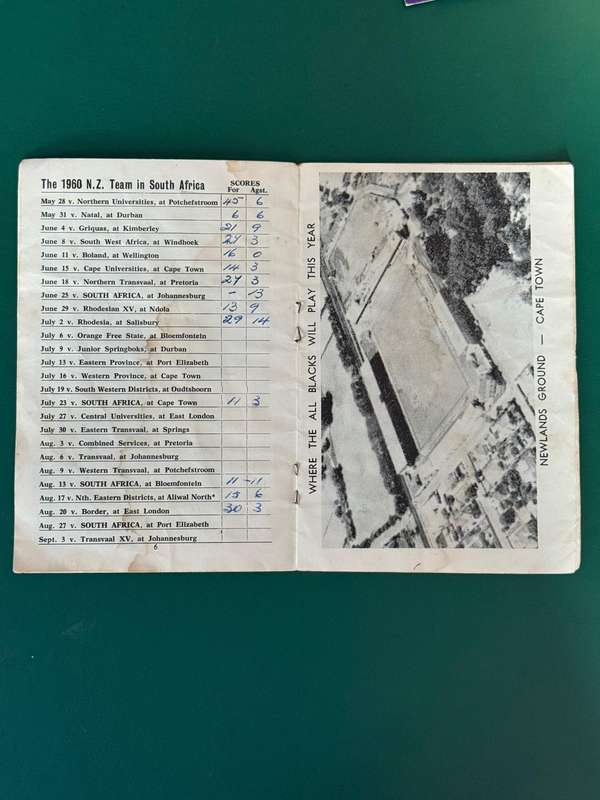 The 1960 N.Z. Team in South Africa
SCORES
For Agst.
May 28 v. Northern Universities, at Potchefstroom 45 6
May 31 v. Natal, at Durban 6 6
June 4 v. Griquas, at Kimberley 21 9
June 8 v. South West Africa, at Windhoek 27 3
June 11 v. Boland, at Wellington 16 0
June 15 v. Cape Universities, at Cape Town 14 3
June 18 v. Northern Transvaal, at Pretoria 27 3
June 25 v. SOUTH AFRICA, at Johannesburg - 13
June 29 v. Rhodesian XV, at Ndola 13 9
July 2 v. Rhodesia, at Salisbury 29 14
July 6 v. Orange Free State, at Bloemfontein
July 9 v. Junior Springboks, at Durban
July 13 v. Eastern Province, at Port Elizabeth
July 16 v. Western Province, at Cape Town
July 19 v. South Western Districts, at Oudtshoorn
July 23 v. SOUTH AFRICA, at Cape Town 11 3
July 27 v. Central Universities, at East London
July 30 v. Eastern Transvaal, at Springs
Aug. 3 v. Combined Services, at Pretoria
Aug. 6 v. Transvaal, at Johannesburg
Aug. 9 v. Western Transvaal, at Potchefstroom
Aug. 13 v. SOUTH AFRICA, at Bloemfontein 11 -11
Aug. 17 v. Nth. Eastern Districts, at Aliwal North* 15 6
Aug. 20 v. Border, at East London 30 3
Aug. 27 v. SOUTH AFRICA, at Port Elizabeth
Sept. 3 v. Transvaal XV, at Johannesburg
6
WHERE THE ALL BLACKS WILL PLAY THIS YEAR
NEWLANDS GROUND — CAPE TOWN